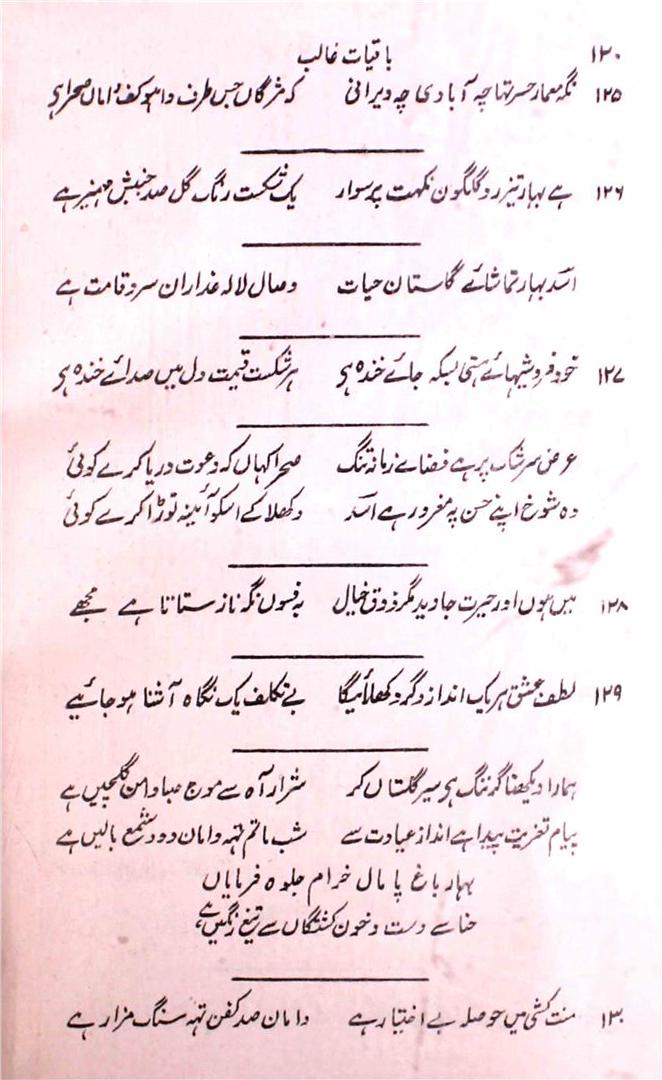 ۱۲۰ باقیات غالب
۱۲۵ نگہ معمار حسرتہا چہ آبادی چہ ویرانی کہ مژگاں جس طرف وا ہو بکف دامان صحرا ہی
۱۲۶ ہے بہار تیز رو گلگون نکہت پر سوار یک شکست رنگ گل صد جنبش مہمیز ہے
اسد بہار تماشائے گلستان حیات وصال لالہ عذاران سرو قامت ہے
۱۲۷ خود فروشیہائے ہستی بسکہ جائے خندہ ہی ہر شکست قیمت دل میں صدائے خندہ ہی
عرض سرشک پر ہے فضاے زمانہ تنگ صحرا کہاں کہ دعوت دریا کرے کوئی
وہ شوخ اپنے حسن پہ مغرور ہے اسد دکھلا کے اسکو آئینہ توڑا کرے کوئی
۱۲۸ میں ہوں اور حیرت جاوید مگر ذوق خیال بہ فسون نگہ ناز ستاتا ہے مجھے
۱۲۹ لطف عشق ہر یک انداز دگر دکھلائیگا بے تکلف یک نگاہ آشنا ہو جائیے
ہمارا دیکھنا گر ننگ ہی سیر گلستاں کر شرار آہ سے موج صبا دامن گلچیں ہے
پیام تعزیت پیدا ہے انداز عیادت سے شب ماتم تہہ دامان دود شمع بالیں ہے
بہار باغ پامال خرام جلوہ فرمایاں
حنا سے دست و خون کشتگاں سے تیغ رنگیں ہے
۱۳۰ منت کشی میں حوصلہ بے اختیار ہے دامان صد کفن تہہ سنگ مزار ہے